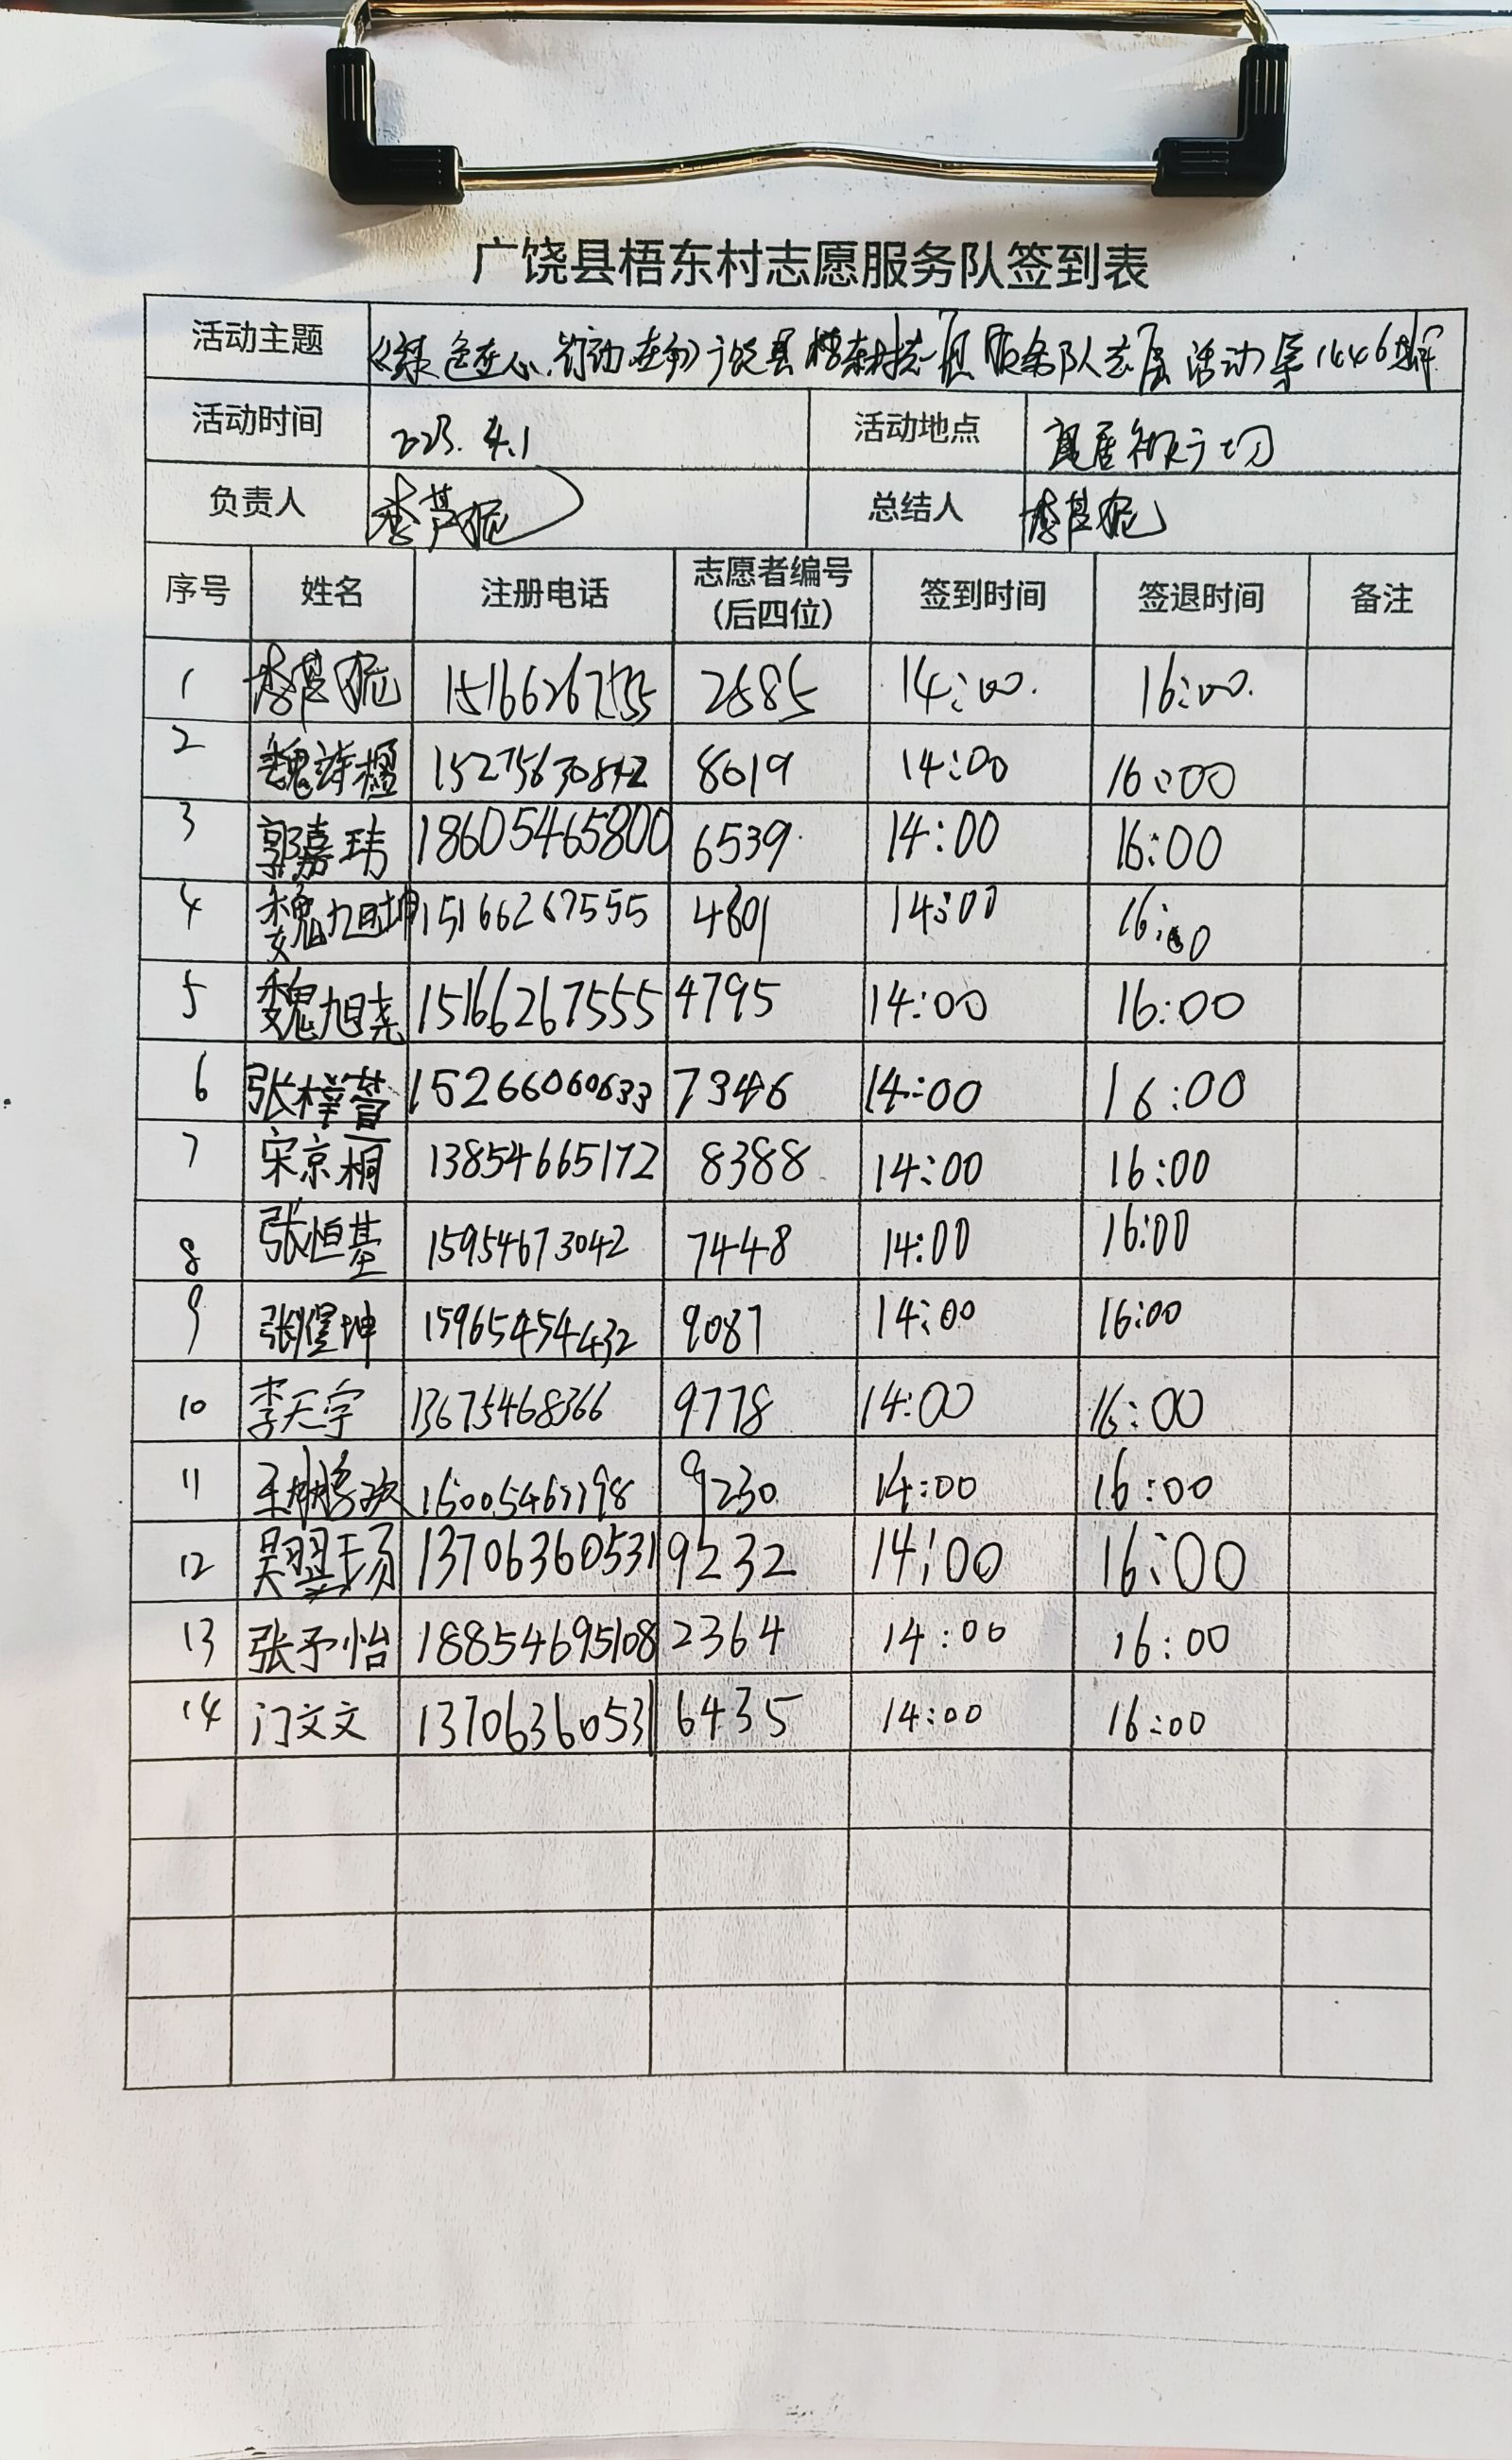 广饶县梧东村志愿服务队签到表
活动主题 《绿色在心、行动在手》广饶县梧东村志愿服务队志愿活动第1446期
活动时间 2023.4.1 活动地点
负责人 总结人
序号 姓名 注册电话 志愿者编号 签到时间 签退时间 备注
(后四位)
1 14:00. 16:00.
2 8019 14:00 16:00
3 郭嘉玮 18605465800 6539. 14:00 16:00
4 魏旭坤 15166267555 4801 14:00 16:00
5 魏旭尧 15166267555 4795 14:00 16:00
6 张梓萱 15266060633 7346 14:00 16:00
7 宋京桐 13854665172 8388 14:00 16:00
8 张恒基 15954673042 7448 14:00 16:00
9 15965454432 9087 14:00 16:00
10 李天宇 13675468366 9778 14:00 16:00
11 9230 14:00 16:00
12 吴翌玚 13706360531 9232 14:00 16:00
13 张予怡 18854695108 2364 14:00 16:00
14 门文文 13706360531 6435 14:00 16:00